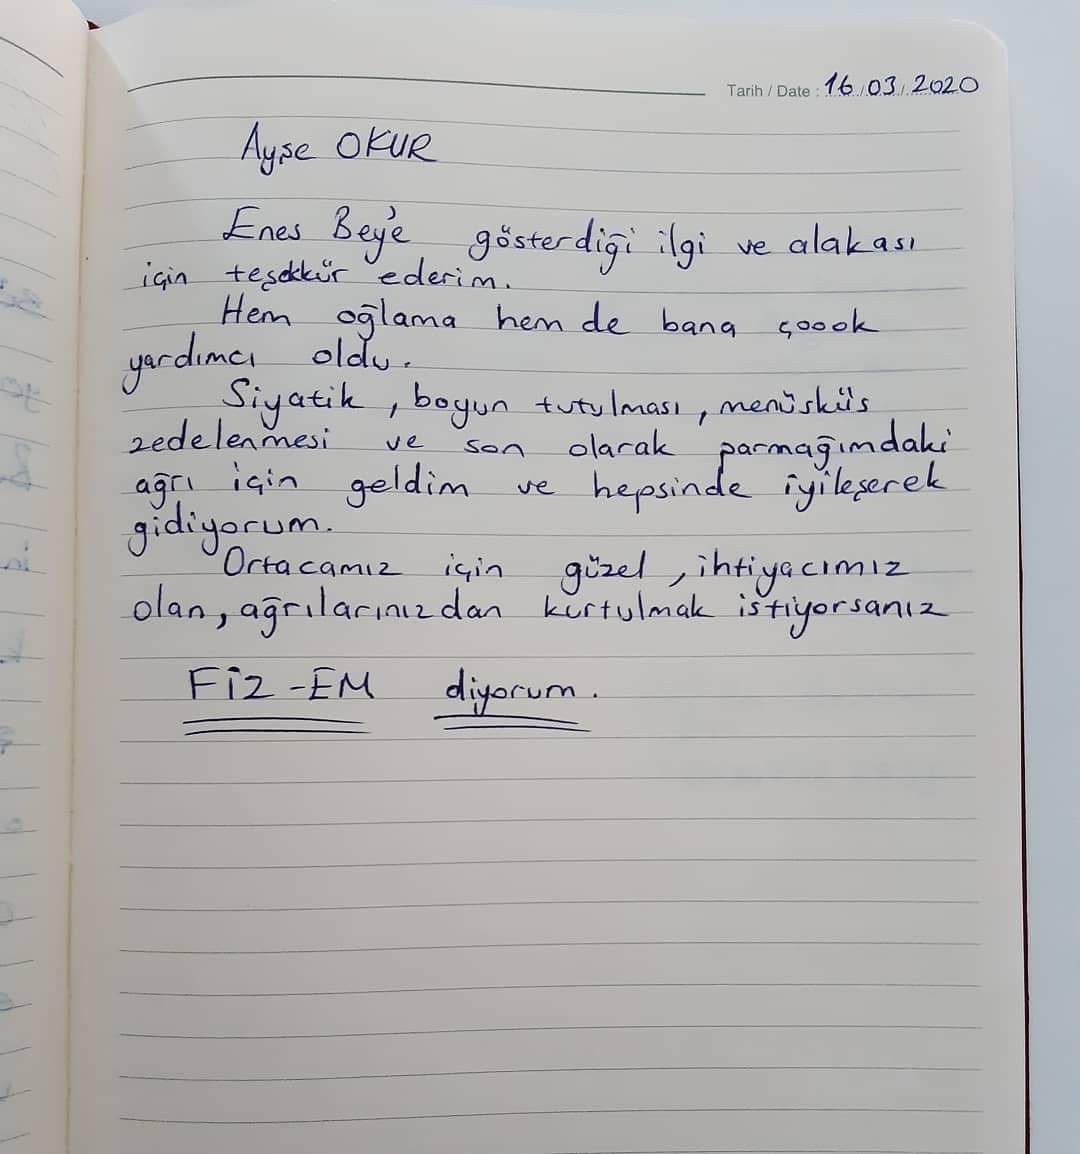 Tarih / Date : 16/03/2020
Ayşe OKUR
Enes Bey'e gösterdiği ilgi ve alakası
için teşekkür ederim.
Hem oğlama hem de bana çoook
yardımcı oldu.
Siyatik, boyun tutulması, menüsküs
zedelenmesi ve son olarak parmağımdaki
ağrı için geldim ve hepsinde iyileşerek
gidiyorum.
Ortacamız için güzel, ihtiyacımız
olan, ağrılarınızdan kurtulmak istiyorsanız
FİZ-EM diyorum.